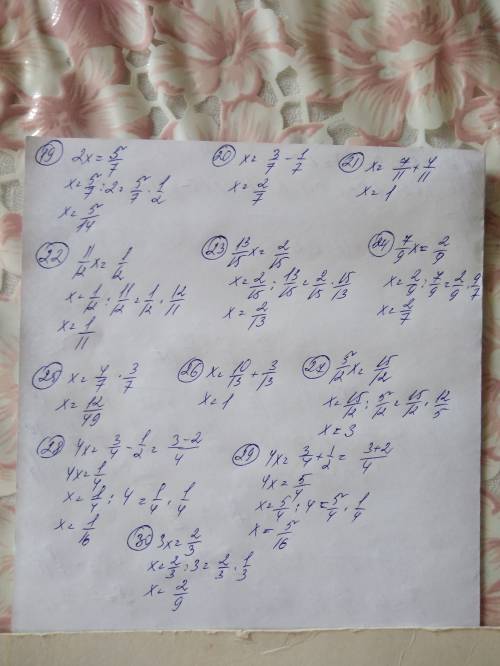 19 2x = 5/7
x = 5/7 : 2 = 5/7 · 1/2
x = 5/14
20 x = 3/7 - 1/7
x = 2/7
21 x = 7/11 + 4/11
x = 1
22 11/12 x = 1/12
x = 1/12 : 11/12 = 1/12 · 12/11
x = 1/11
23 13/15 x = 2/15
x = 2/15 : 13/15 = 2/15 · 15/13
x = 2/13
24 7/9 x = 2/9
x = 2/9 : 7/9 = 2/9 · 9/7
x = 2/7
25 x = 4/7 · 3/7
x = 12/49
26 x = 10/13 + 3/13
x = 1
27 5/12 x = 15/12
x = 15/12 : 5/12 = 15/12 · 12/5
x = 3
28 4x = 3/4 - 1/2 = 3-2/4
4x = 1/4
x = 1/4 : 4 = 1/4 · 1/4
x = 1/16
29 4x = 3/4 + 1/2 = 3+2/4
4x = 5/4
x = 5/4 : 4 = 5/4 · 1/4
x = 5/16
30 3x = 2/3
x = 2/3 : 3 = 2/3 · 1/3
x = 2/9